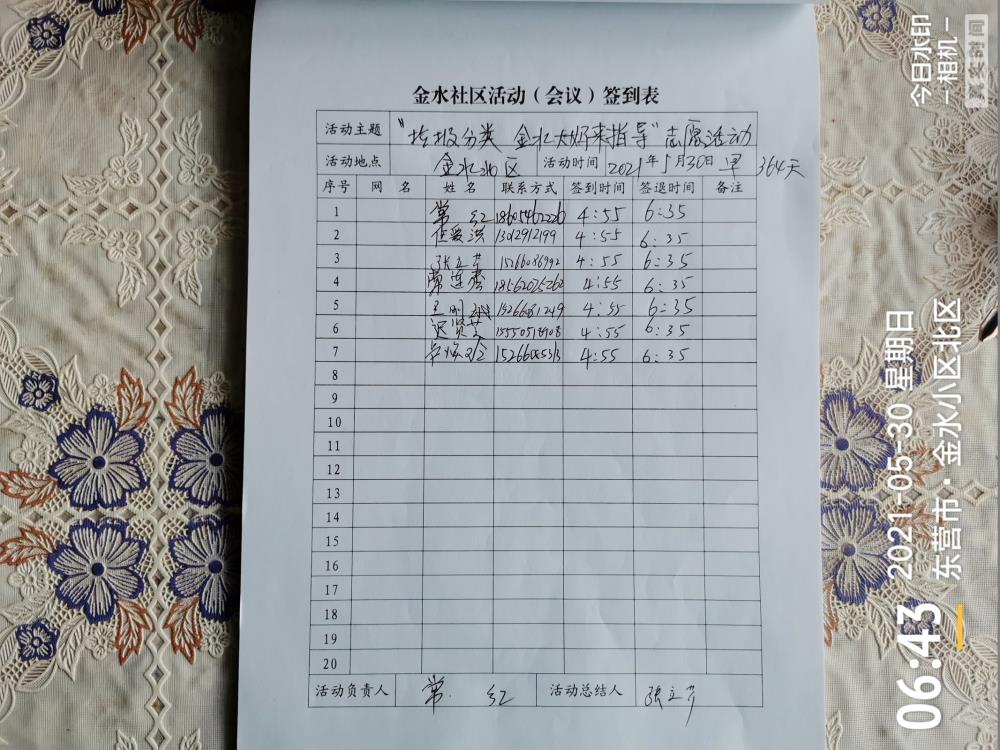 金水社区活动（会议）签到表
活动主题 "垃圾分类 金水大妈来指导"志愿活动
活动地点 金水北区 活动时间 2021年5月30日 早 364天
序号 网 名 姓 名 联系方式 签到时间 签退时间 备注
1 常 红 18605462226 4:55 6:35
2 任爱洪 13012912199 4:55 6:35
3 张立芹 15266086992 4:55 6:35
4 常连秀 18562025262 4:55 6:35
5 4:55 6:35
6 迟贤芝 4:55 6:35
7 4:55 6:35
8
9
10
11
12
13
14
15
16
17
18
19
20
活动负责人 常 红 活动总结人 张立芹
06:43 2021-05-30 星期日
东营市·金水小区北区
今日水印
-相机-
真实时间